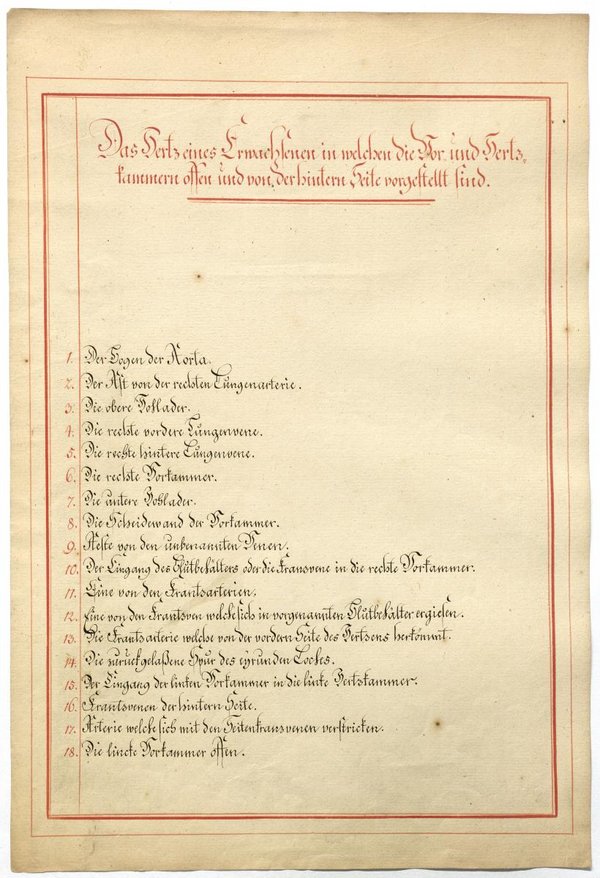 Das Hertz eines Erwachsenen in welchen die Vor- und Hertz-
kammern offen und von der hintern Seite vorgestellt sind.
1. Der Bogen der Aorta.
2. Der Ast von der rechten Lungenarterie.
3. Die obere Hohlader.
4. Die rechte vordere Lungenvene.
5. Die rechte hintere Lungenvene.
6. Die rechte Vorkammer.
7. Die untere Hohlader.
8. Die Scheidewand der Vorkammer.
9. Aeste von den unbenannten Venen.
10. Der Eingang des Blutbehälters oder die Kransvene in die rechte Vorkammer.
11. Eine von den Krantsarterien.
12. Eine von den Krantsven welche sich in vorgenannten Blutbehälter ergießen.
13. Die Krantsarterie welche von der vordern Seite des Hertzens herkommt.
14. Die zurückgelaßene Spur des eyrunden Loches.
15. Der Eingang der linken Vorkammer in die linke Hertzkammer.
16. Krantsvenen der hintern Seite.
17. Arterie welche sich mit den Seitenkransvenen verstricken.
18. Die lincke Vorkammer offen.